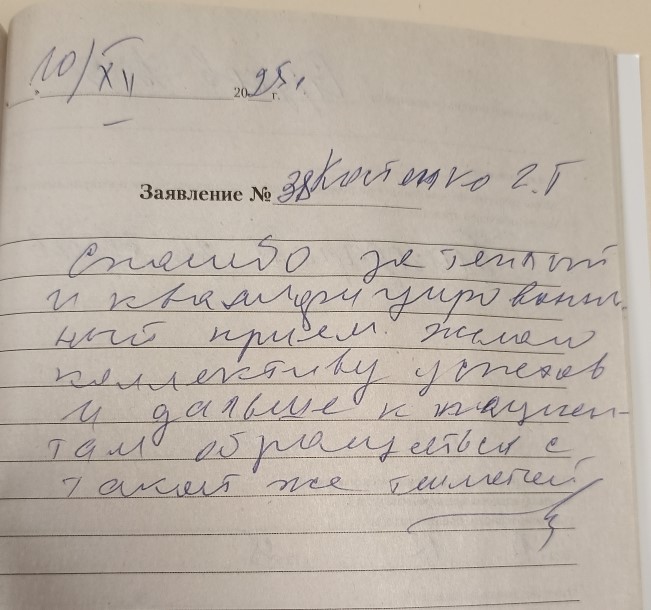 10/XII 2025 г.
Заявление № 38 Костенко Г.Г
Спасибо за теплый
и квалифицирован-
ный прием. Желаю
коллективу успехов
и дальше к пациен-
там обращаться с
такой же теплотой